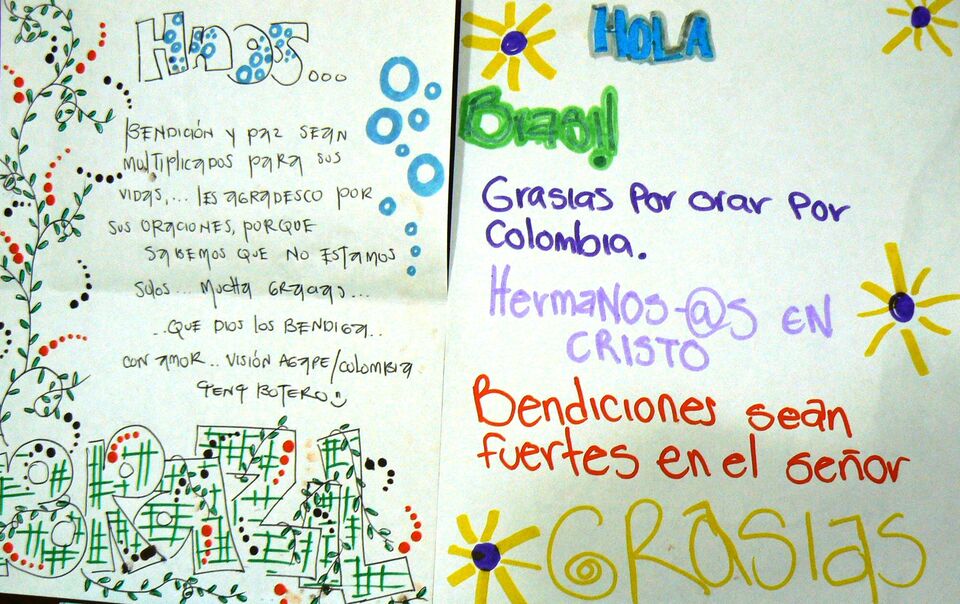 Hnos...
BENDICIÓN y PAZ SEAN
MULTIPLICADOS PARA SUS
VIDAS,... LES AGRADESCO POR
SUS ORACIONES, PORQUE
SABEMOS QUE NO ESTAMOS
SOLOS... MUCHA GRACIAS...
...QUE DIOS LOS BENDIGA..
CON AMOR.. VISIÓN AGAPE/COLOMBIA
BOTERO
BRAZIL
HOLA
Brasil!
Grasias Por orar Por
Colombia.
HermaNOS-@S EN
CRISTO
Bendiciones sean
fuertes en el señor
GRasias